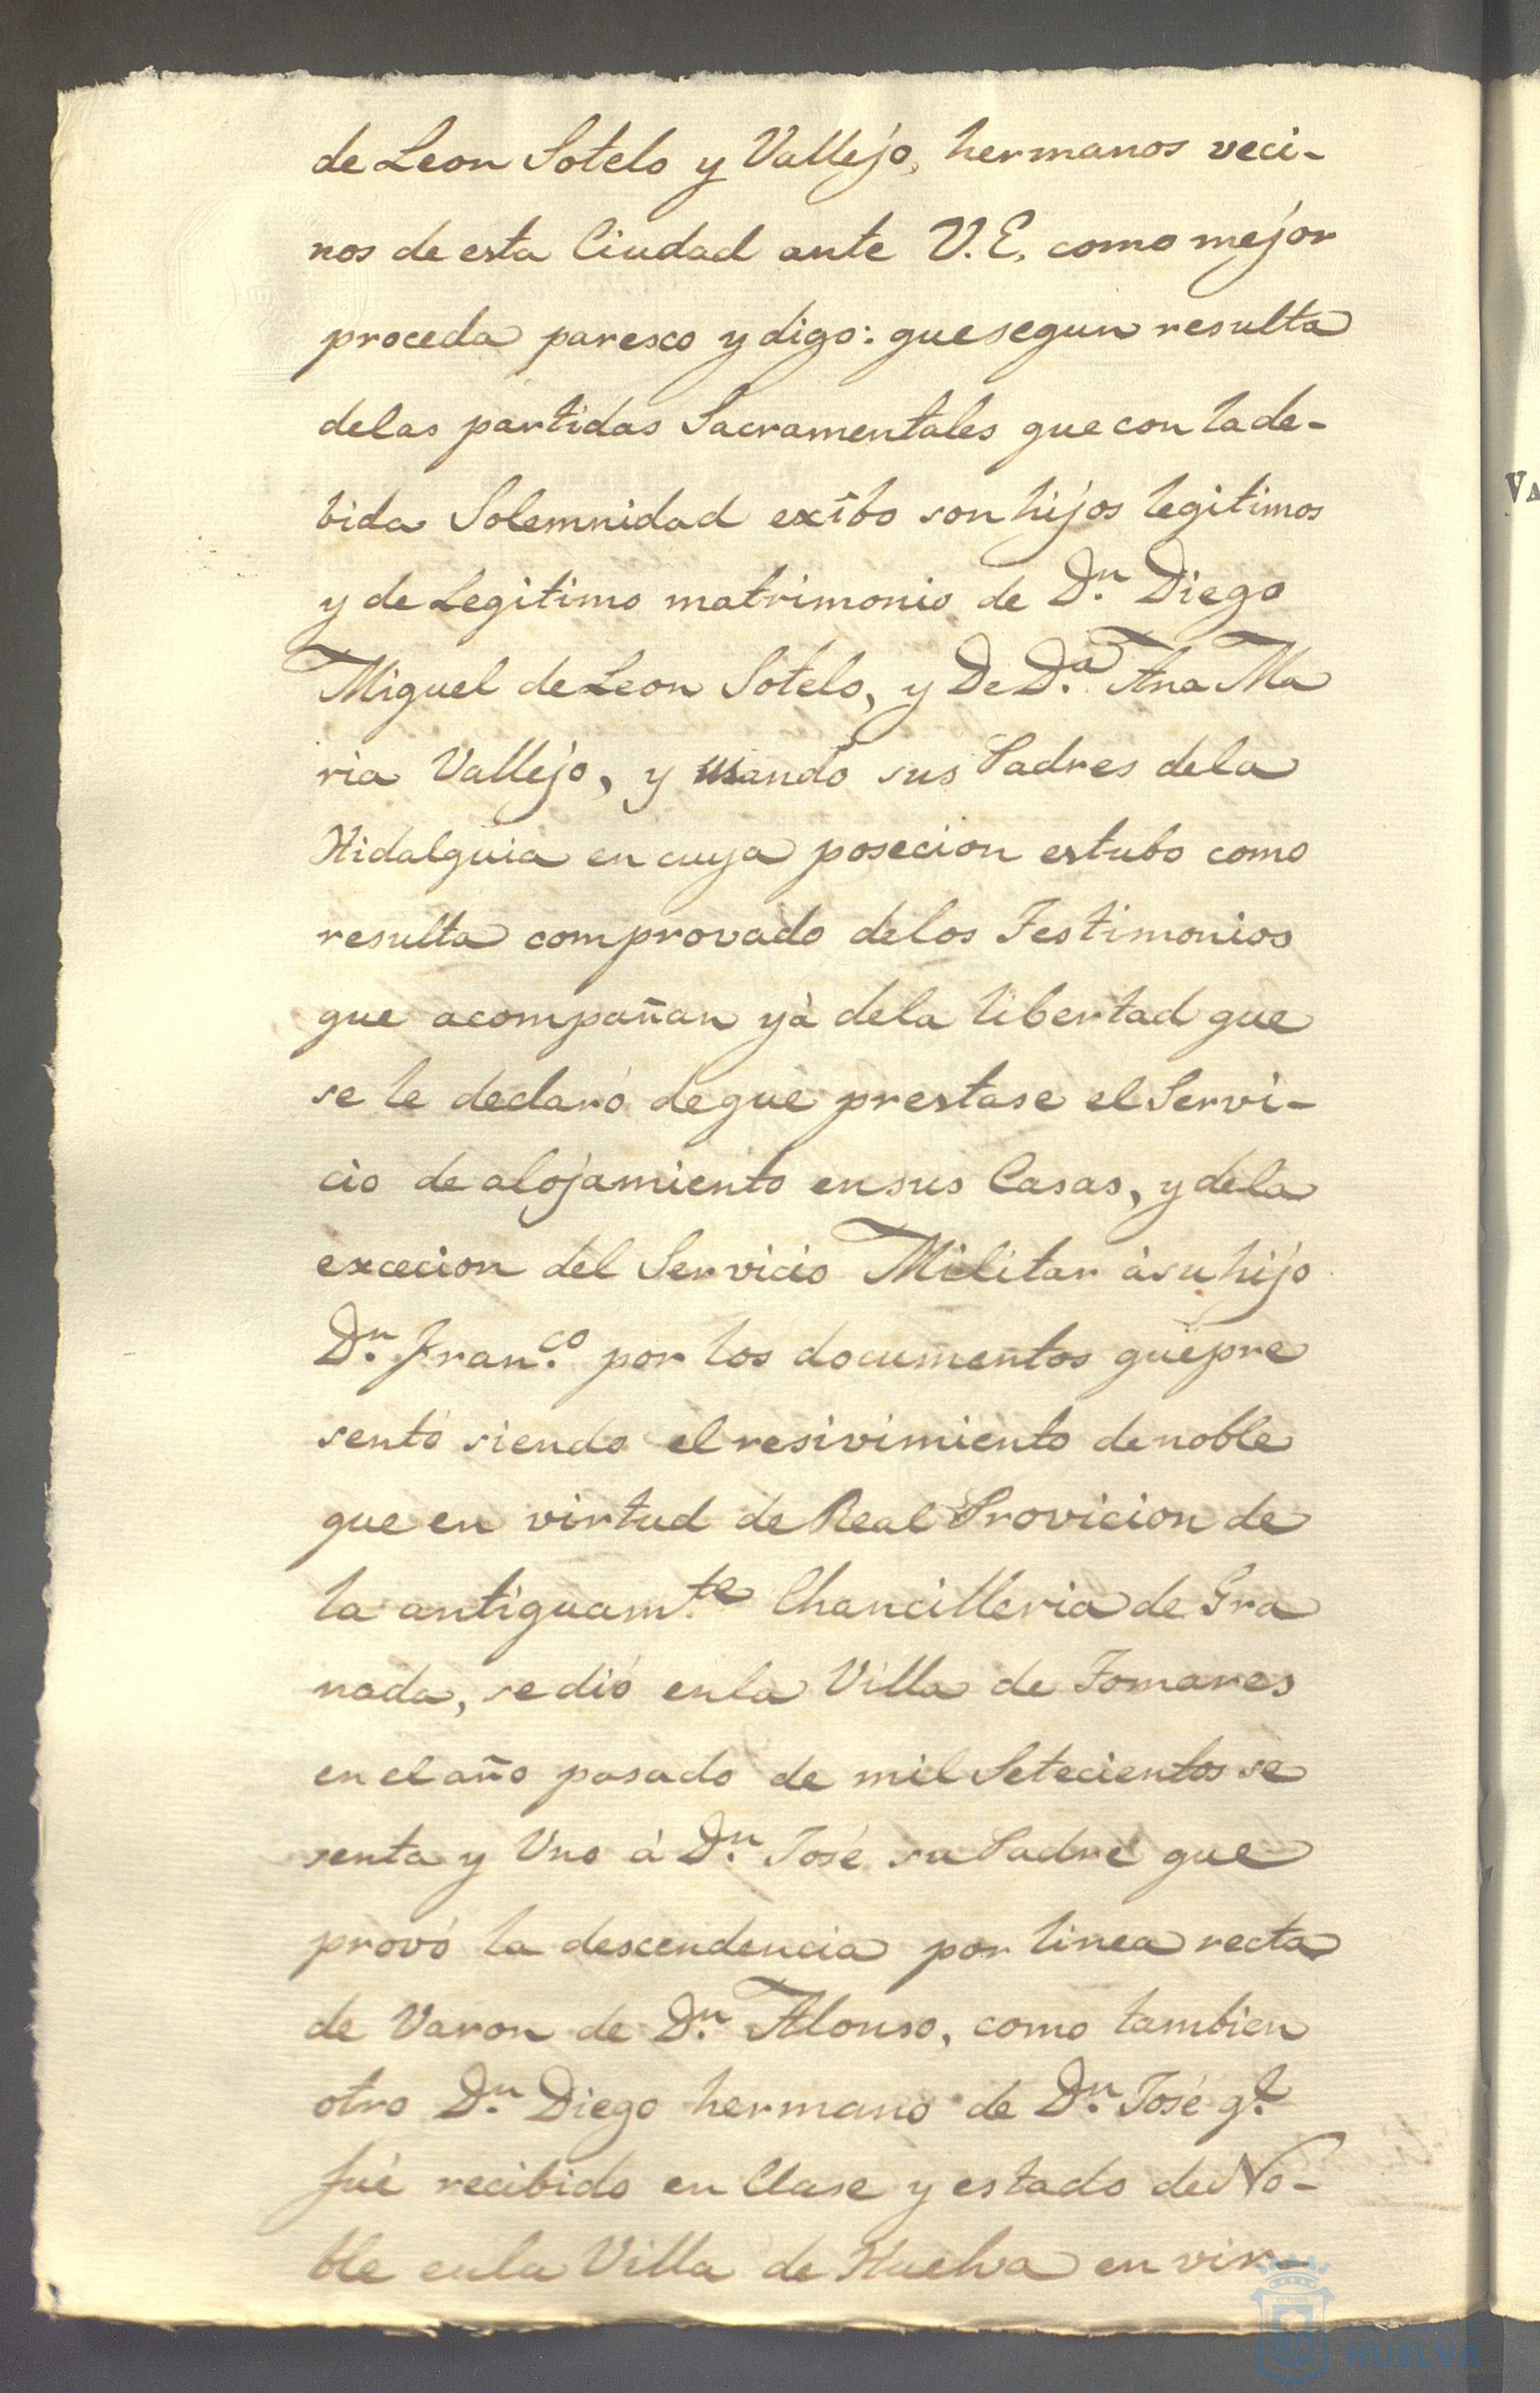 de Leon Sotelo y Vallejo, hermanos veci-
nos de esta Ciudad ante V. E. como mejor
proceda paresco y digo: que segun resulta
de las partidas Sacramentales que con la de-
bida Solemnidad exîbo son hijos legitimos
y de Legitimo matrimonio de Dn. Diego
Miguel de Leon Sotelo, y De Da. Ana Ma
ria Vallejo, y usando sus Padres de la
Hidalguia en cuya posecion estubo como
resulta comprovado de los Testimonios
que acompañan yà de la libertad que
se le declaró de que prestase el Servi-
cio de alojamiento en sus Casas, y de la
excecion del Servicio Militar à su hijo
Dn. Franco. por los documentos que pre
sentó siendo el resivimiento de noble
que en virtud de Real Provicion de
la antiguamte. Chancilleria de Gra
nada, se dió en la Villa de Tomares
en el año pasado de mil Setecientos se
senta y Uno à Dn. José su Padre que
provó la descendencia por linea recta
de Varon de Dn. Alonso, como tambien
otro Dn. Diego hermano de Dn. José qe.
fué recibido en Clase y estado de No-
ble en la Villa de Huelva en vir-
HUELVA